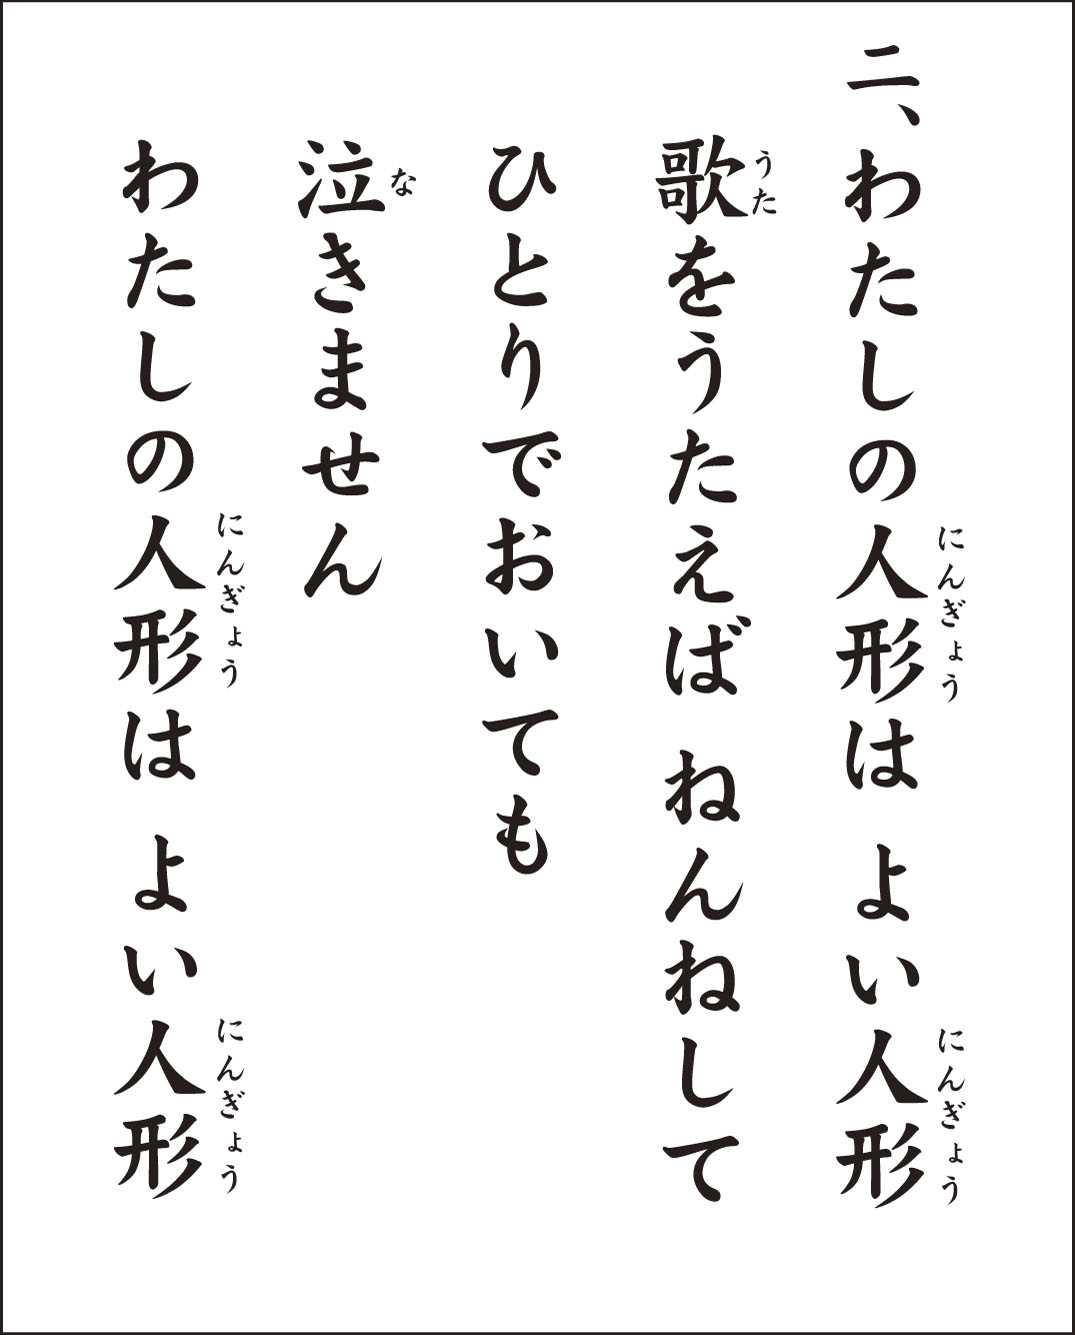 二、わたしの人形は よい人形
歌をうたえば ねんねして
ひとりでおいても
泣きません
わたしの人形は よい人形
にんぎょう
にんぎょう
うた
な
にんぎょう
にんぎょう